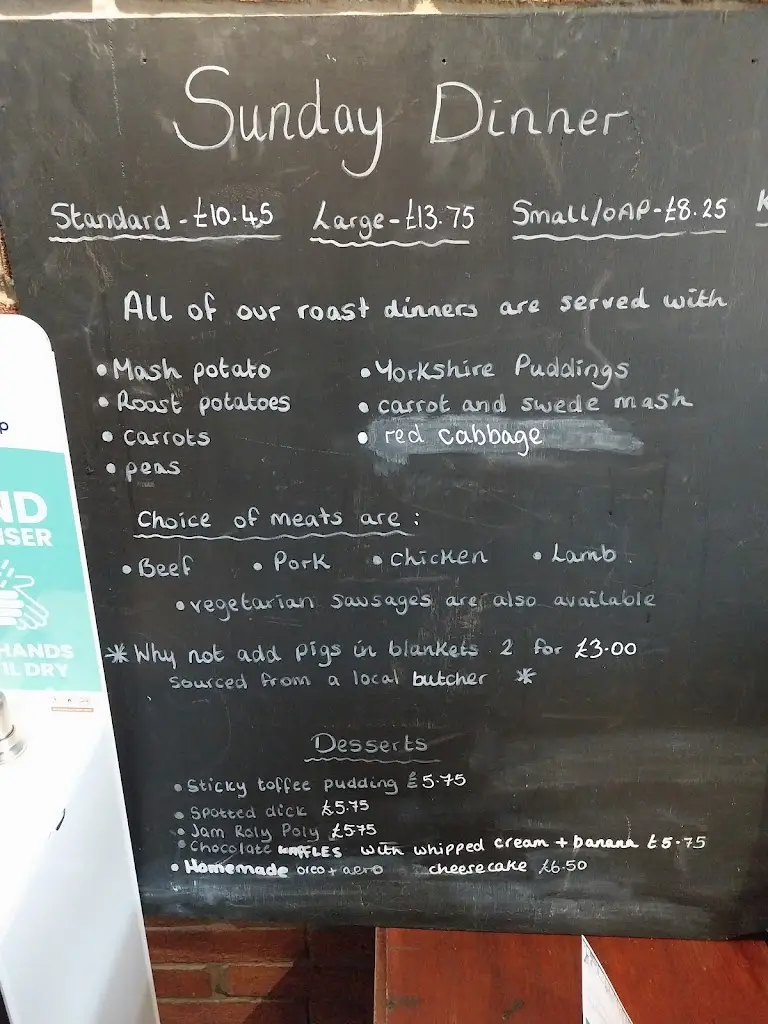 Sunday Dinner
Standard - £10.45 Large - £13.75 Small/OAP - £8.25 K
All of our roast dinners are served with
• Mash potato • Yorkshire Puddings
• Roast potatoes • carrot and swede mash
• carrots • red cabbage
• peas
Choice of meats are :
• Beef • Pork • chicken • Lamb
• vegetarian sausages are also available
* Why not add pigs in blankets 2 for £3.00
sourced from a local butcher *
Desserts
• Sticky toffee pudding £5.75
• Spotted dick £5.75
• Jam Roly Poly £5.75
• Chocolate waffles with whipped cream + banana £5.75
• Homemade oreo + aero cheesecake £6.50
p
ND
ISER
HANDS
TIL DRY